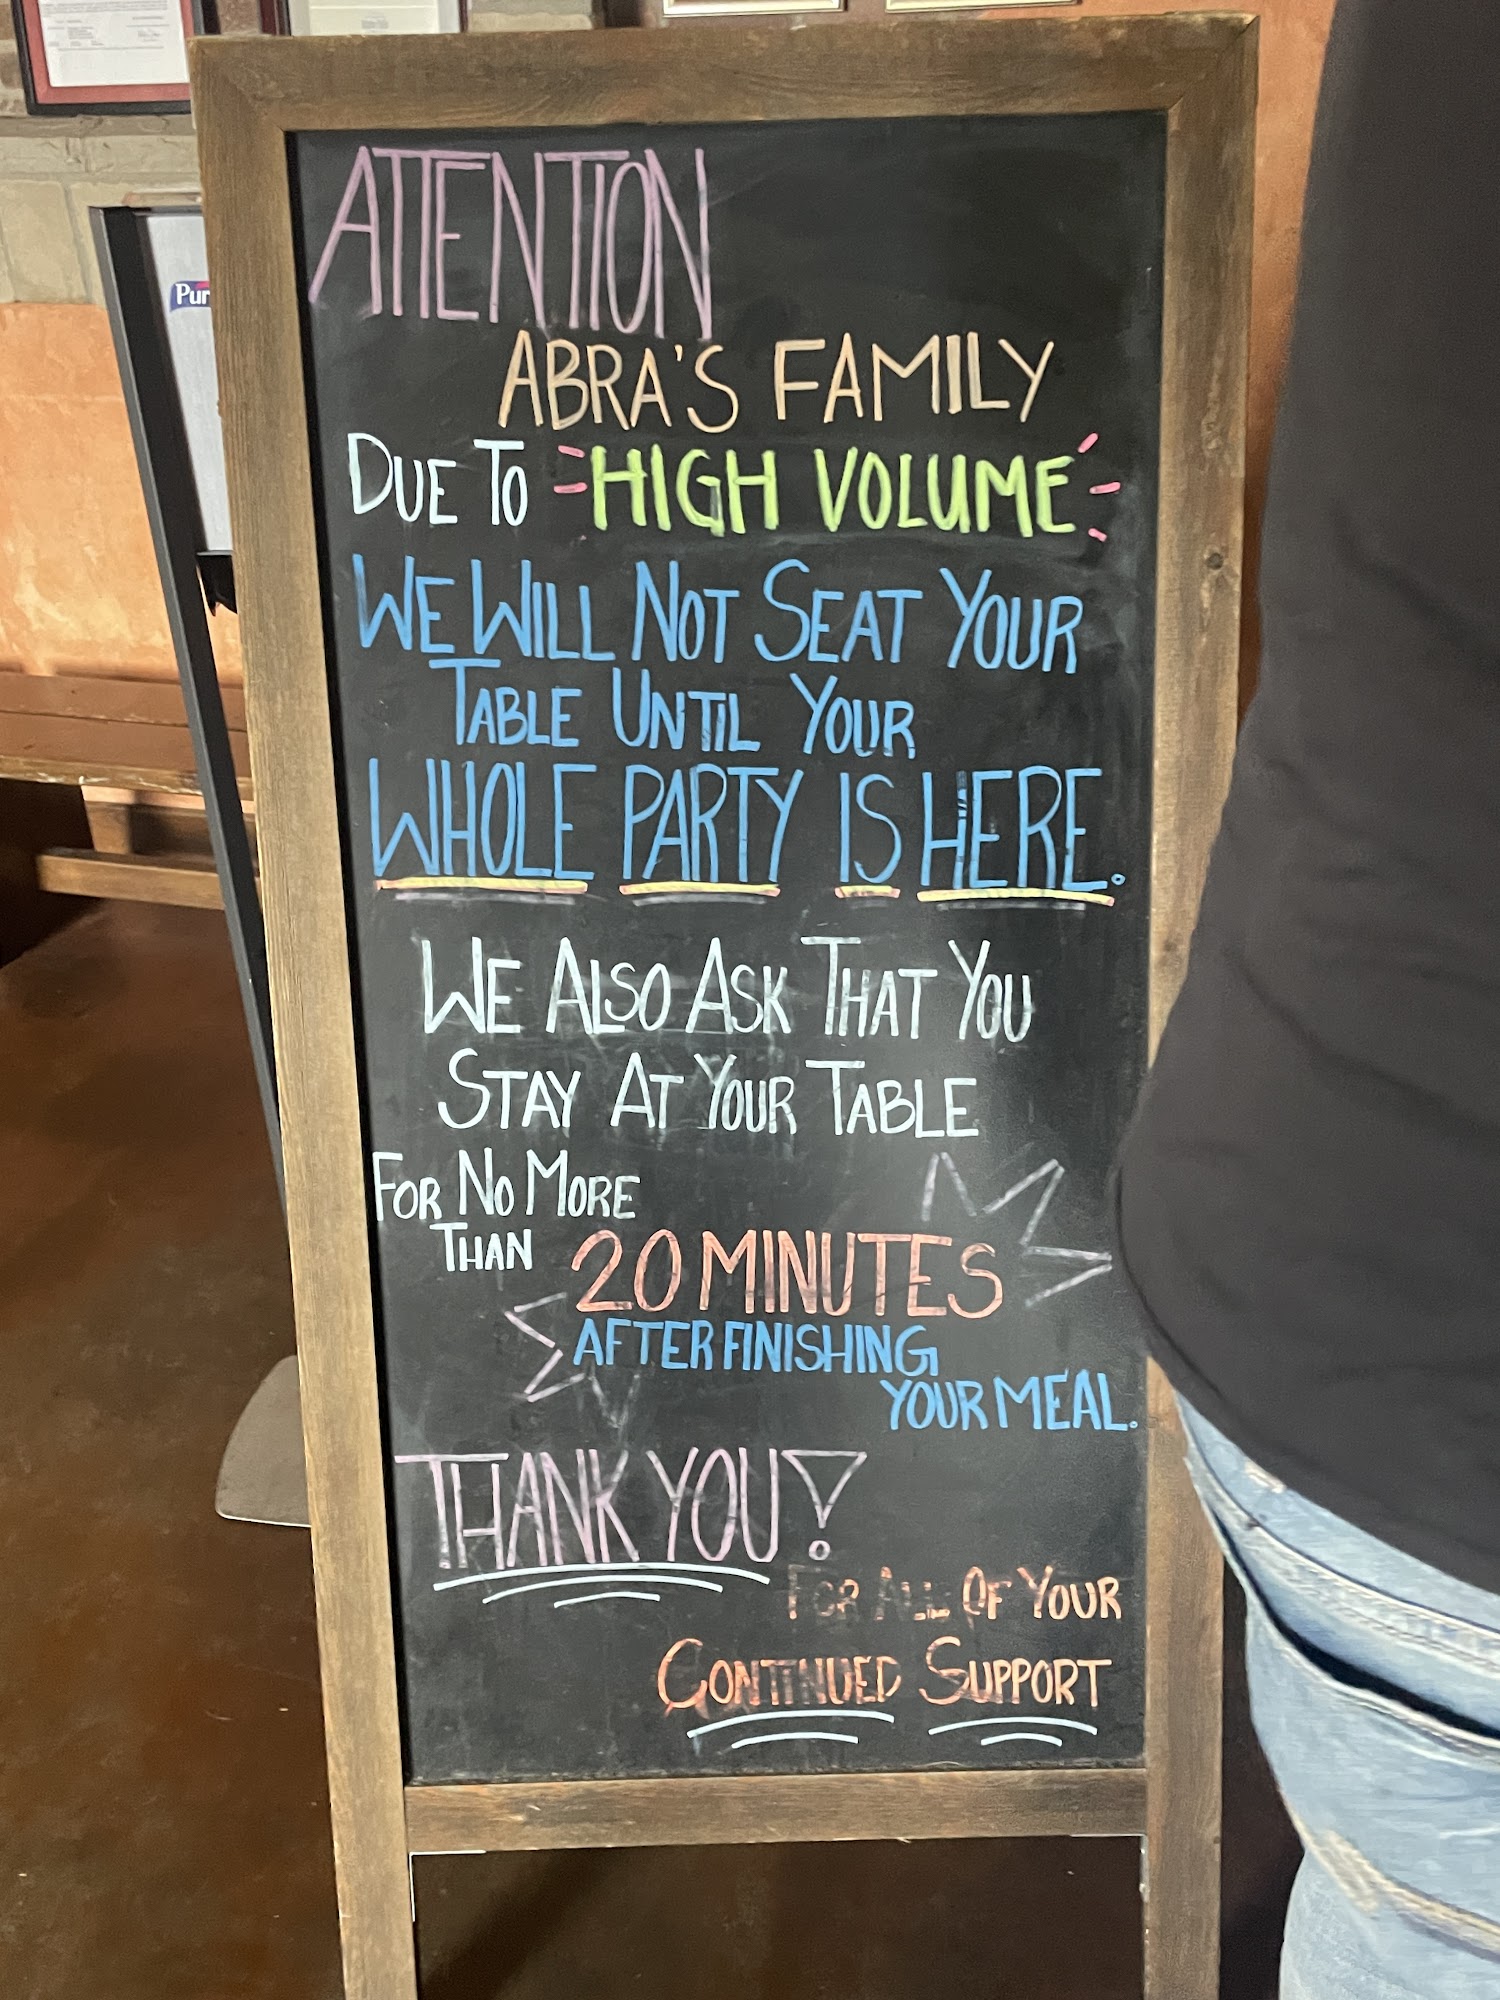 Pur
ATTENTION
ABRA'S FAMILY
DUE TO HIGH VOLUME
WE WILL NOT SEAT YOUR
TABLE UNTIL YOUR
WHOLE PARTY IS HERE.
WE ALSO ASK THAT YOU
STAY AT YOUR TABLE
FOR NO MORE
THAN 20 MINUTES
AFTER FINISHING
YOUR MEAL.
THANK YOU!
FOR ALL OF YOUR
CONTINUED SUPPORT